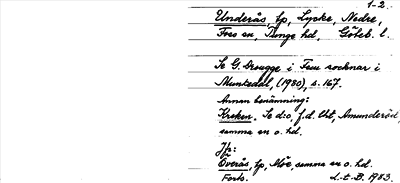 1-2.
Underås, tp, Lycke, Nedre,
Foss sn, Tunge hd, Göteb. l.
Se G. Drougge i Fem socknar i
Munkedal, (1980), s. 167.
Annan benämning:
Kroken. Se d:o, f.d. Utt, Amunderöd,
samma sn o. hd.
Jfr:
Överås, tp, Möe, samma sn o. hd.
Forts. L-t-B. 1983.